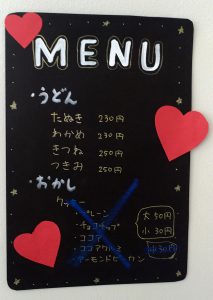 MENU
・うどん
たぬき 230円
わかめ 230円
きつね 250円
つきみ 250円
・おかし
クッキー
・プレーン
・チョコチップ
・ココア
・ココアクルミ
・アーモンドピーカン
大 50円
小 30円
小 30円